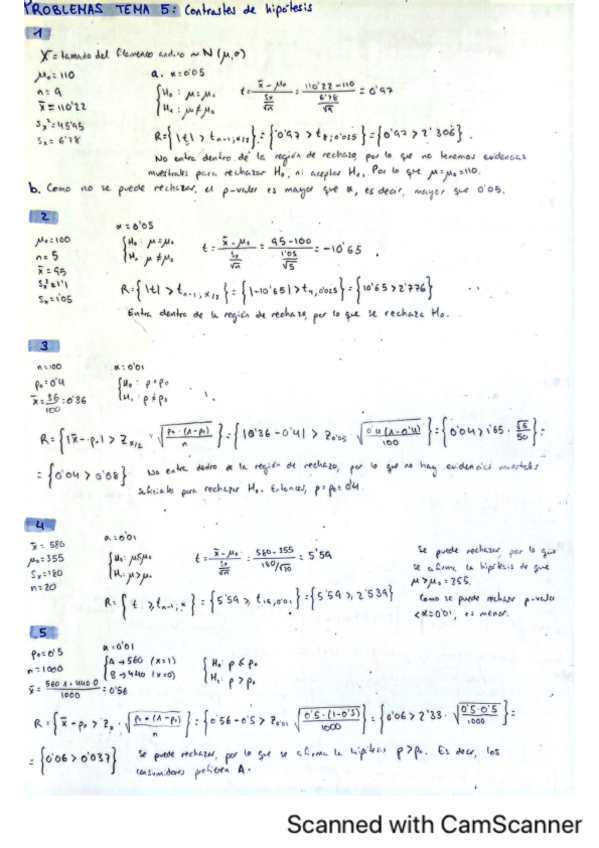 PROBLEMAS TEMA 5: Contrastes de hipótesis
1
X = tamaño del flamenco andino ~ N(μ,σ)
μ₀=110
n=9
x̄=110'22
Sx²=45'95
Sx=6'78
a. α=0'05
{H₀: μ=μ₀
H₁: μ≠μ₀
t= (x̄-μ₀)/(Sx/√n) = (110'22-110)/(6'78/√9) = 0'97
R={|t| > t n-1, α/2} = {0'97 > t 8, 0'025} = {0'97 > 2'306}.
No entra dentro de la región de rechazo, por lo que no tenemos evidencias
muestrales para rechazar H₀, ni aceptar H₁. Por lo que μ=μ₀=110.
b. Como no se puede rechazar, el p-valor es mayor que α, es decir, mayor que 0'05.
2
α=0'05
μ₀=100
n=5
x̄=95
Sx²=1'1
Sx=1'05
{H₀: μ=μ₀
H₁: μ≠μ₀
t= (x̄-μ₀)/(Sx/√n) = (95-100)/(1'05/√5) = -10'65
R={|t| > t n-1, α/2} = {|-10'65| > t 4, 0'025} = {10'65 > 2'776}
Entra dentro de la región de rechazo, por lo que se rechaza H₀.
3
n=100
p₀=0'4
x̄= 36/100 = 0'36
α=0'01
{H₀: p=p₀
H₁: p≠p₀
R={|x̄-p₀| > Z α/2 · √(p₀·(1-p₀)/n)} = {|0'36-0'4| > Z 0'05 · √(0'4(1-0'4)/100)} = {0'04 > 1'65 · √6/50} =
= {0'04 > 0'08} No entra dentro de la región de rechazo, por lo que no hay evidencias muestrales
suficientes para rechazar H₀. Entonces, p=p₀=0'4.
4
x̄= 580
μ₀=355
Sx=180
n=20
α=0'01
{H₀: μ≤μ₀
H₁: μ>μ₀
t= (x̄-μ₀)/(Sx/√n) = (580-355)/(180/√20) = 5'59
R={t ≥ t n-1, α} = {5'59 ≥ t 19, 0'01} = {5'59 ≥ 2'539}
Se puede rechazar, por lo que
se afirma la hipótesis de que
μ>μ₀=355.
Como se puede rechazar p-valor
<α=0'01, es menor.
5
p₀=0'5
n=1000
x̄= (560·1+440·0)/1000 = 0'56
α=0'01
{A→560 (x=1)
B→440 (x=0)
{H₀: p≤p₀
H₁: p>p₀
R={x̄-p₀ > Zα · √(p₀·(1-p₀)/n)} = {0'56-0'5 > Z 0'01 √(0'5·(1-0'5)/1000)} = {0'06 > 2'33 · √(0'5·0'5/1000)} =
= {0'06 > 0'037} Se puede rechazar, por lo que se afirma la hipótesis p>p₀. Es decir, los
consumidores prefieren A.
Scanned with CamScanner